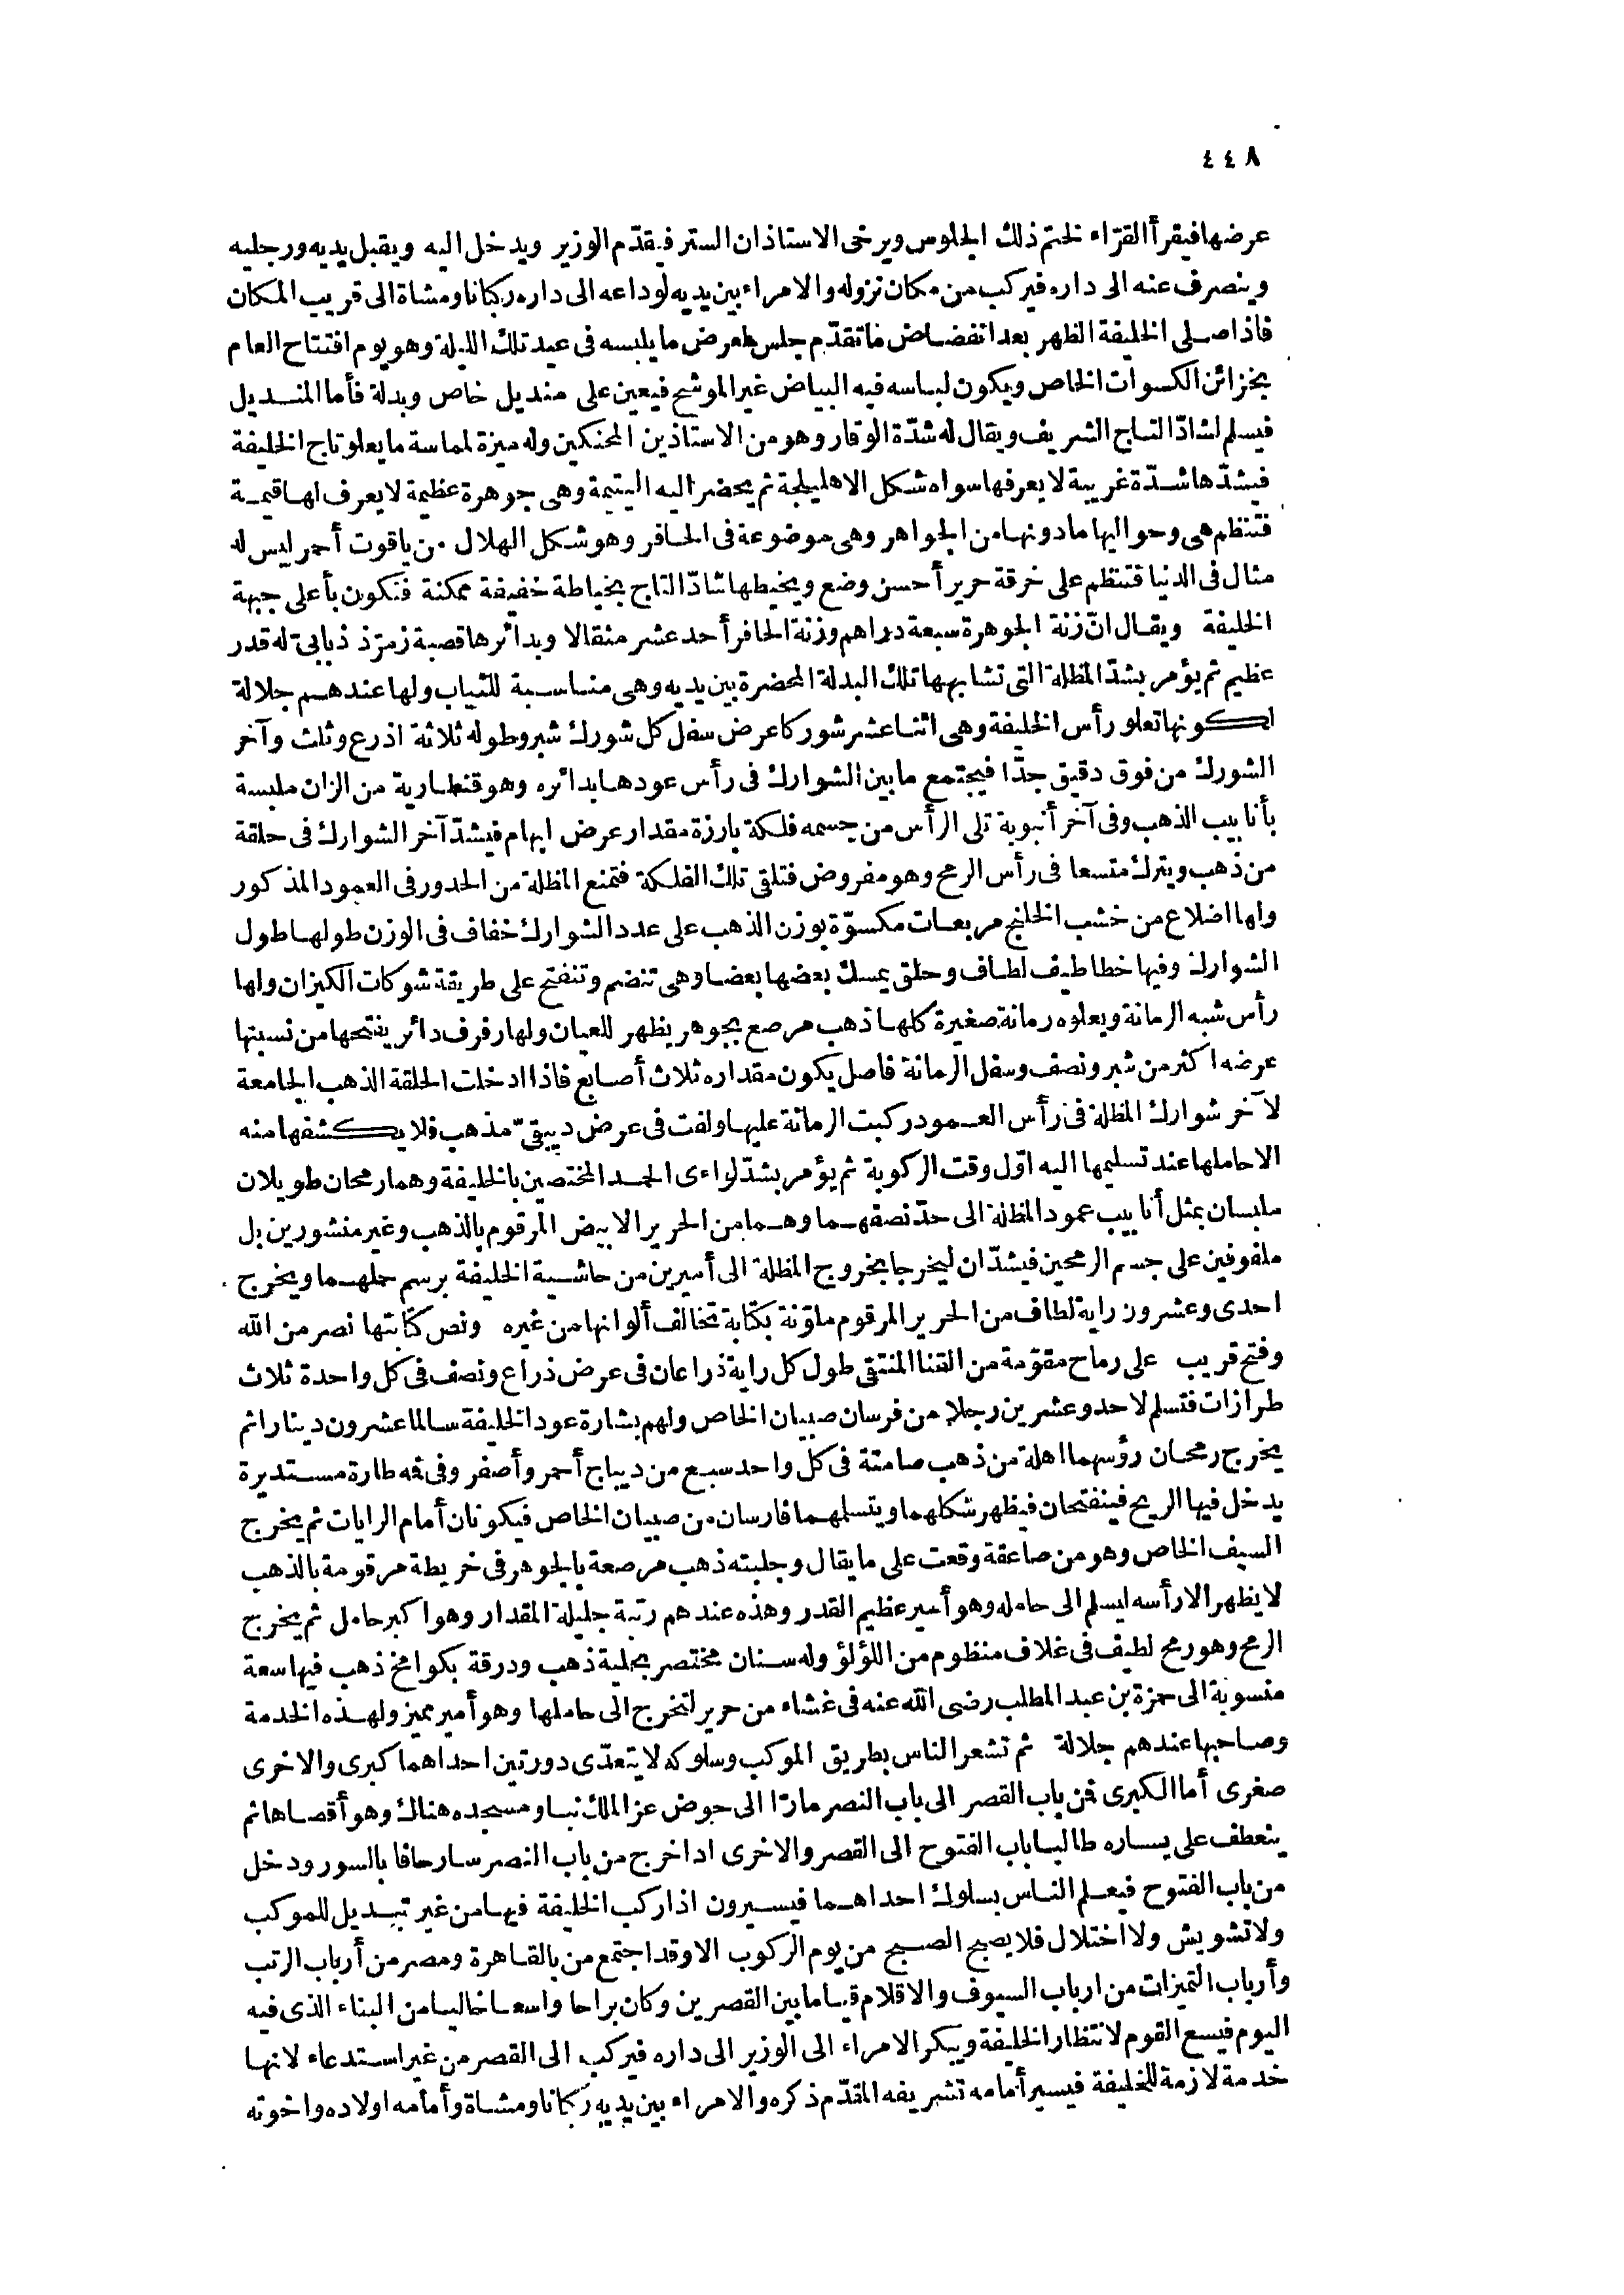 ٤٤٨
عرضها فيقرأ القرّاء لختم ذلك الجلوس ويرخى الاستاذان الستر فيقدّم الوزير ويدخل اليه ويقبل يديه ورجليه
وينصرف عنه الى داره فيركب من مكان نزوله والامراء بين يديه لوداعه الى داره ركبانا ومشاة الى قريب المكان
فاذا صلى الخليفة الظهر بعد انفضاض ما تقدّم جلس لعرض ما يلبسه فى عيد تلك الليلة وهو يوم افتتاح العام
بخزائن الكسوات الخاص ويكون لباسه فيه البياض غير الموشح فيعين على منديل خاص وبدلة فأما المنديل
فيسلم لشادّ التاج الشريف ويقال له شدّة الوقار وهو من الاستاذين المحنكين وله ميزة لمماسة ما يعلو تاج الخليفة
فيشدّها شدّة غريبة لا يعرفها سواه شكل الاهليلجة ثم يحضر اليه اليتيمة وهى جوهرة عظيمة لا يعرف لها قيمة
فتنظم هى وحواليها ما دونها من الجواهر وهى موضوعة فى الحافر وهو شكل الهلال من ياقوت أحمر ليس له
مثال فى الدنيا فتنظم على خرقة حرير أحسن وضع ويخيطها شادّ التاج بخياطة خفيفة ممكنة فتكون بأعلى جبهة
الخليفة ويقال انّ زنة الجوهرة سبعة دراهم وزنة الحافر أحد عشر مثقالا وبدائرها قصبة زمرّذ ذبابىّ له قدر
عظيم ثم يؤمر بشدّ المظلة التى تشابهها تلك البدلة المحضرة بين يديه وهى مناسبة للثياب ولها عندهم جلالة
لكونها تعلو رأس الخليفة وهى اثنا عشر شوركا عرض سفل كل شورك شبر وطوله ثلاثة اذرع وثلث وآخر
الشورك من فوق دقيق جدّا فيجتمع ما بين الشوارك فى رأس عودها بدائره وهو قنطارية من الزان ملبسة
بأنابيب الذهب وفى آخر أنبوبة تلى الرأس من جسمه فلكة بارزة مقدار عرض ابهام فيشدّ آخر الشوارك فى حلقة
من ذهب ويترك متسعا فى رأس الرمح وهو مفروض فتلقى تلك الفلكة فتمنع المظلة من الحدور فى العمود المذكور
ولها اضلاع من خشب الخلنج مربعات مكسوّة بوزن الذهب على عدد الشوارك خفاف فى الوزن طولها طول
الشوارك وفيها خطاطيف لطاف وحلق يمسك بعضها بعضا وهى تنضم وتنفتح على طريقة شوكات الكيزان ولها
رأس شبه الرمانة ويعلوه رمانة صغيرة كلها ذهب مرصع بجوهر يظهر للعيان ولها رفرف دائر يفتحها من نسبتها
عرضه اكثر من شبر ونصف وسفل الرمانة فاصل يكون مقداره ثلاث أصابع فاذا ادخلت الحلقة الذهب الجامعة
لآخر شوارك المظلة فى رأس العمود ركبت الرمانة عليها ولفت فى عرض دبيقىّ مذهب فلا يكشفها منه
الا حاملها عند تسليمها اليه اوّل وقت الركوبة ثم يؤمر بشدّ لواءى الحمد المختصين بالخليفة وهما رمحان طويلان
ملبسان بمثل أنابيب عمود المظلة الى حدّ نصفهما وهما من الحرير الابيض المرقوم بالذهب وغير منشورين بل
ملفوفين على جسم الرمحين فيشدّان ليخرجا بخروج المظلة الى أميرين من حاشية الخليفة برسم حملهما ويخرج
احدى وعشرون راية لطاف من الحرير المرقوم ملوّنة بكتابة تخالف ألوانها من غيره ونص كتابتها نصر من الله
وفتح قريب على رماح مقوّمة من القنا المنتقى طول كل راية ذراعان فى عرض ذراع ونصف فى كل واحدة ثلاث
طرازات فتسلم لاحد وعشرين رجلا من فرسان صبيان الخاص ولهم بشارة عود الخليفة سالما عشرون دينارا ثم
يخرج رمحان رؤسهما اهلة من ذهب صامتة فى كل واحد سبع من ديباج أحمر وأصفر وفى فمه طارة مستديرة
يدخل فيها الريح فينفتحان فيظهر شكلهما ويتسلمهما فارسان من صبيان الخاص فيكونان أمام الرايات ثم يخرج
السيف الخاص وهو من صاعقة وقعت على ما يقال وحليته ذهب مرصعة بالجوهر فى خريطة مرقومة بالذهب
لا يظهر الا رأسه ليسلم الى حامله وهو أمير عظيم القدر وهذه عندهم رتبة جليلة المقدار وهو اكبر حامل ثم يخرج
الرمح وهو رمح لطيف فى غلاف منظوم من اللؤلؤ وله سنان مختصر بحلية ذهب ودرقة بكوامخ ذهب فيها سعة
منسوبة الى حمزة بن عبد المطلب رضى الله عنه فى غشاء من حرير لتخرج الى حاملها وهو أمير مميز ولهذه الخدمة
وصاحبها عندهم جلالة ثم تشعر الناس بطريق الموكب وسلوكه لا يتعدّى دورتين احداهما كبرى والاخرى
صغرى أما الكبرى فمن باب القصر الى باب النصر مارّا الى حوض عز الملك نبا ومسجده هناك وهو أقصاها ثم
ينعطف على يساره طالبا باب الفتوح الى القصر والاخرى اذا خرج من باب النصر سار حافا بالسور ودخل
من باب الفتوح فيعلم الناس بسلوك احداهما فيسيرون اذا ركب الخليفة فيها من غير تبديل للموكب
ولا تشويش ولا اختلال فلا يصبح الصبح من يوم الركوب الا وقد اجتمع من بالقاهرة ومصر من أرباب الرتب
وأرباب التميزات من ارباب السيوف والاقلام قياما بين القصرين وكان براحا واسعا خاليا من البناء الذى فيه
اليوم فيسع القوم لانتظار الخليفة ويبكر الامراء الى الوزير الى داره فيركب الى القصر من غير استدعاء لانها
خدمة لازمة للخليفة فيسير أمامه تشريفه المقدّم ذكره والامراء بين يديه ركبانا ومشاة وأمامه اولاده واخوته